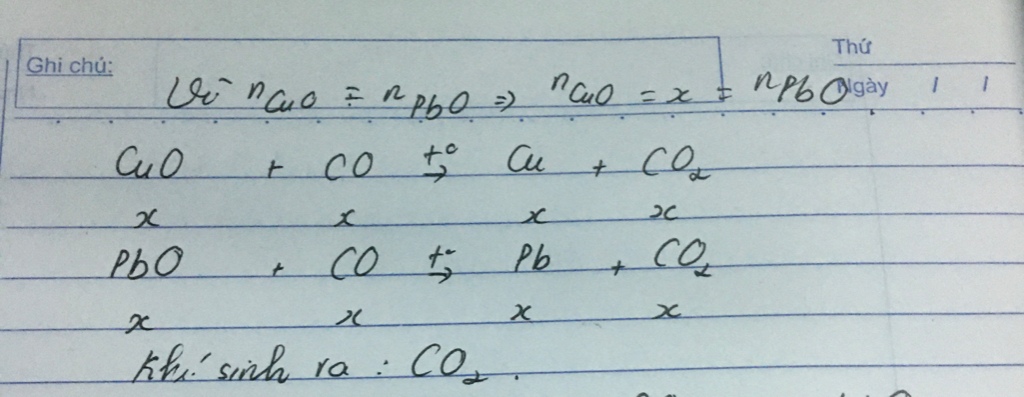 Ghi chú:
Thứ
Ngày / /
Vì nCuO = nPbO ⇒ nCuO = x = nPbO
CuO + CO t° → Cu + CO₂
x x x x
PbO + CO t° → Pb + CO₂
x x x x
Khí sinh ra : CO₂.